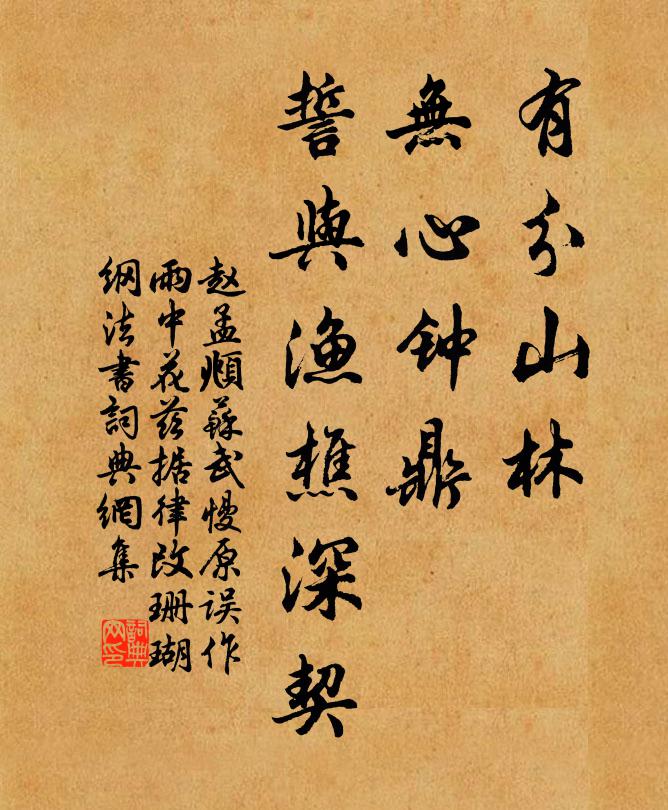 有分山林
無心钟鼎
誓與漁樵深契
赵孟頫蘇武慢原误作
雨中花兹据律改珊瑚
纲法書詞典網集
詞典
网印